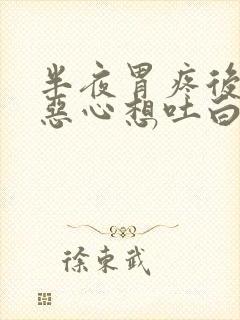 半夜胃疼後
惡心想吐白
徐東武